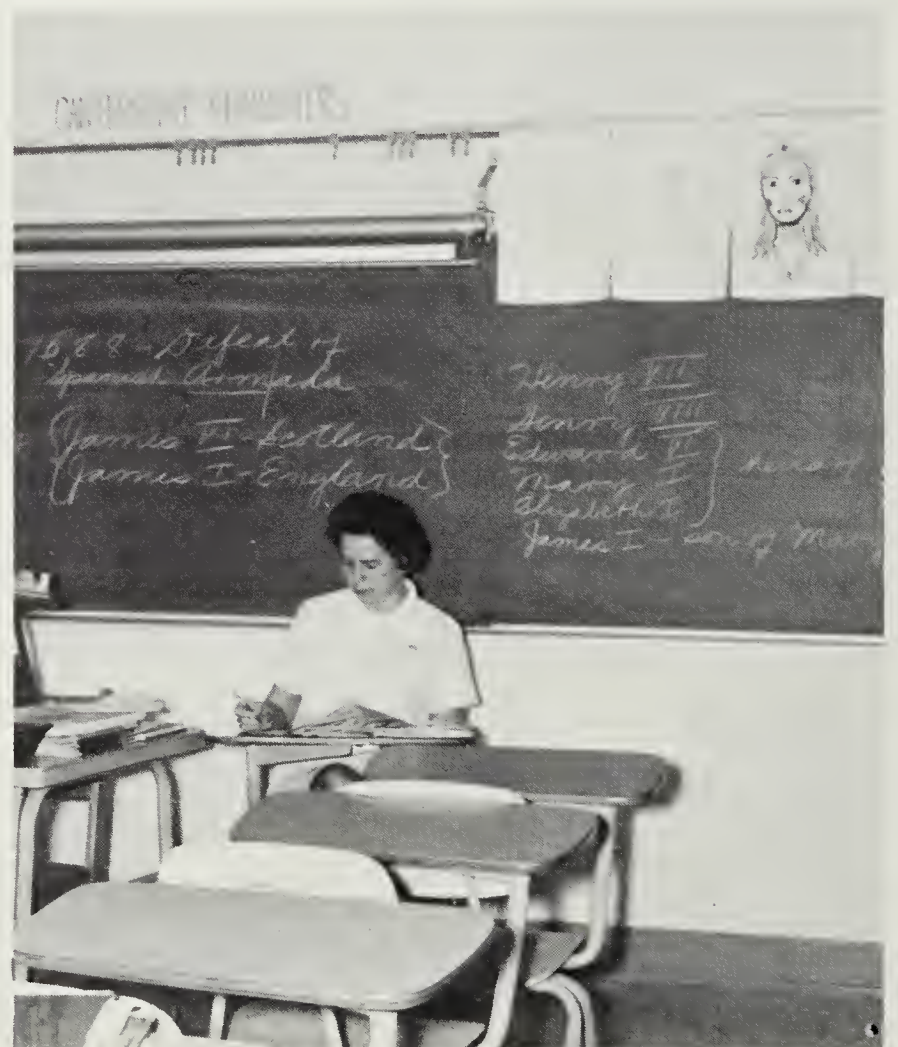 1688 - Defeat of
Spanish Armada
James VI - Scotland
James I - England
Henry VII
Henry VIII
Edward VI
Mary I
Elizabeth I
James I - son of Mary